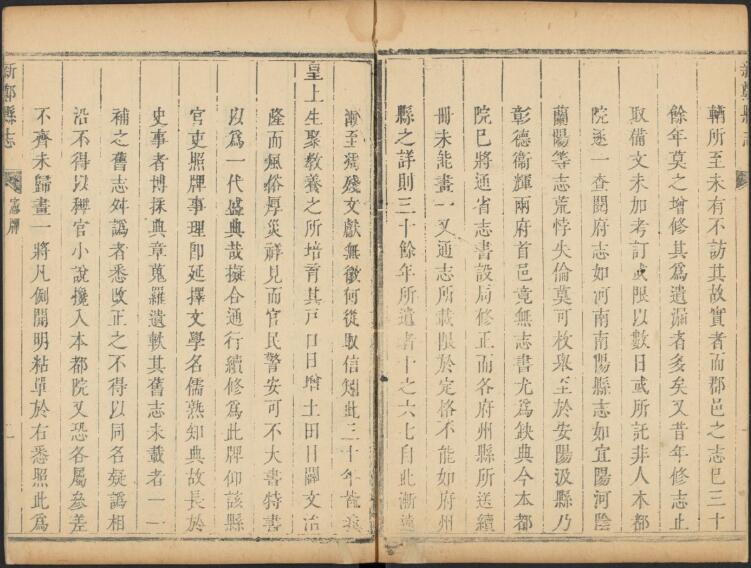 輶所至未有不訪其故實者而郡邑之志已三十
餘年莫之增修其為遺漏者多矣又昔年修志止
取備文未加考訂或限以數日或所託非人本都
院逐一查閱府志如河南南陽縣志如宜陽河陰
蘭陽等志荒悖失倫莫可枚舉至於安陽汲縣乃
彰德衞輝兩府首邑竟無志書尤為缺典今本都
院已將通省志書設局修正而各府州縣所送續
冊未能畫一又通志所載限於定格不能如府州
縣之詳則三十餘年所遺書十之六七自此漸遠
漸至殘文獻無徵何從取信矧此三十年
皇上生聚教養之所培育其戶口日增土田日闢文治
隆而風俗厚災祥見而官民警安可不大書特書
以為一代盛典哉擬合通行續修為此牌仰該縣
官吏照牌事理即延擇文學名儒熟知典故長於
史事者博採典章蒐羅遺軼其舊志未載者一一
補之舊志舛譌者悉改正之不得以同名疑譌相
沿不得以稗官小說攙入本都院又恐各屬參差
不齊未歸畫一將凡例開明粘單於右悉照此為
新鄭縣志
憲牌
一
新鄭縣志